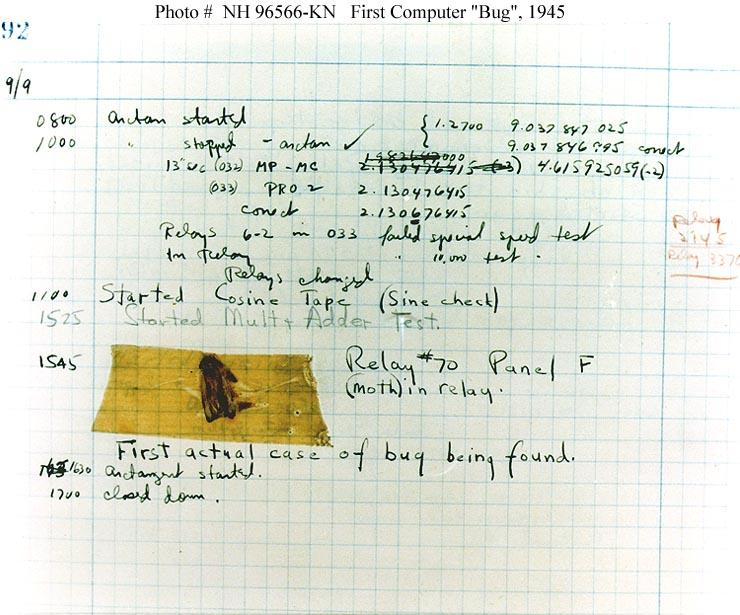 Photo # NH 96566-KN First Computer "Bug", 1945
92
9/9
0800 antan started { 1.2700 9.037 847 025
1000 " stopped - antan ✓ 9.037 846 995 conect
13"uc (032) MP - MC 2.130476415 (-3) 4.615925059(-2)
(033) PRO 2 2.130476415
conect 2.130676415
Relays 6-2 in 033 failed special speed test
In Relay " 10,000 test .
Relay
3145
Relay 3370
Relays changed
1100 Started Cosine Tape (Sine check)
1525 Started Mult + Adder Test.
1545 Relay #70 Panel F
(moth) in relay.
First actual case of bug being found.
1630 antangent started.
1700 closed down.